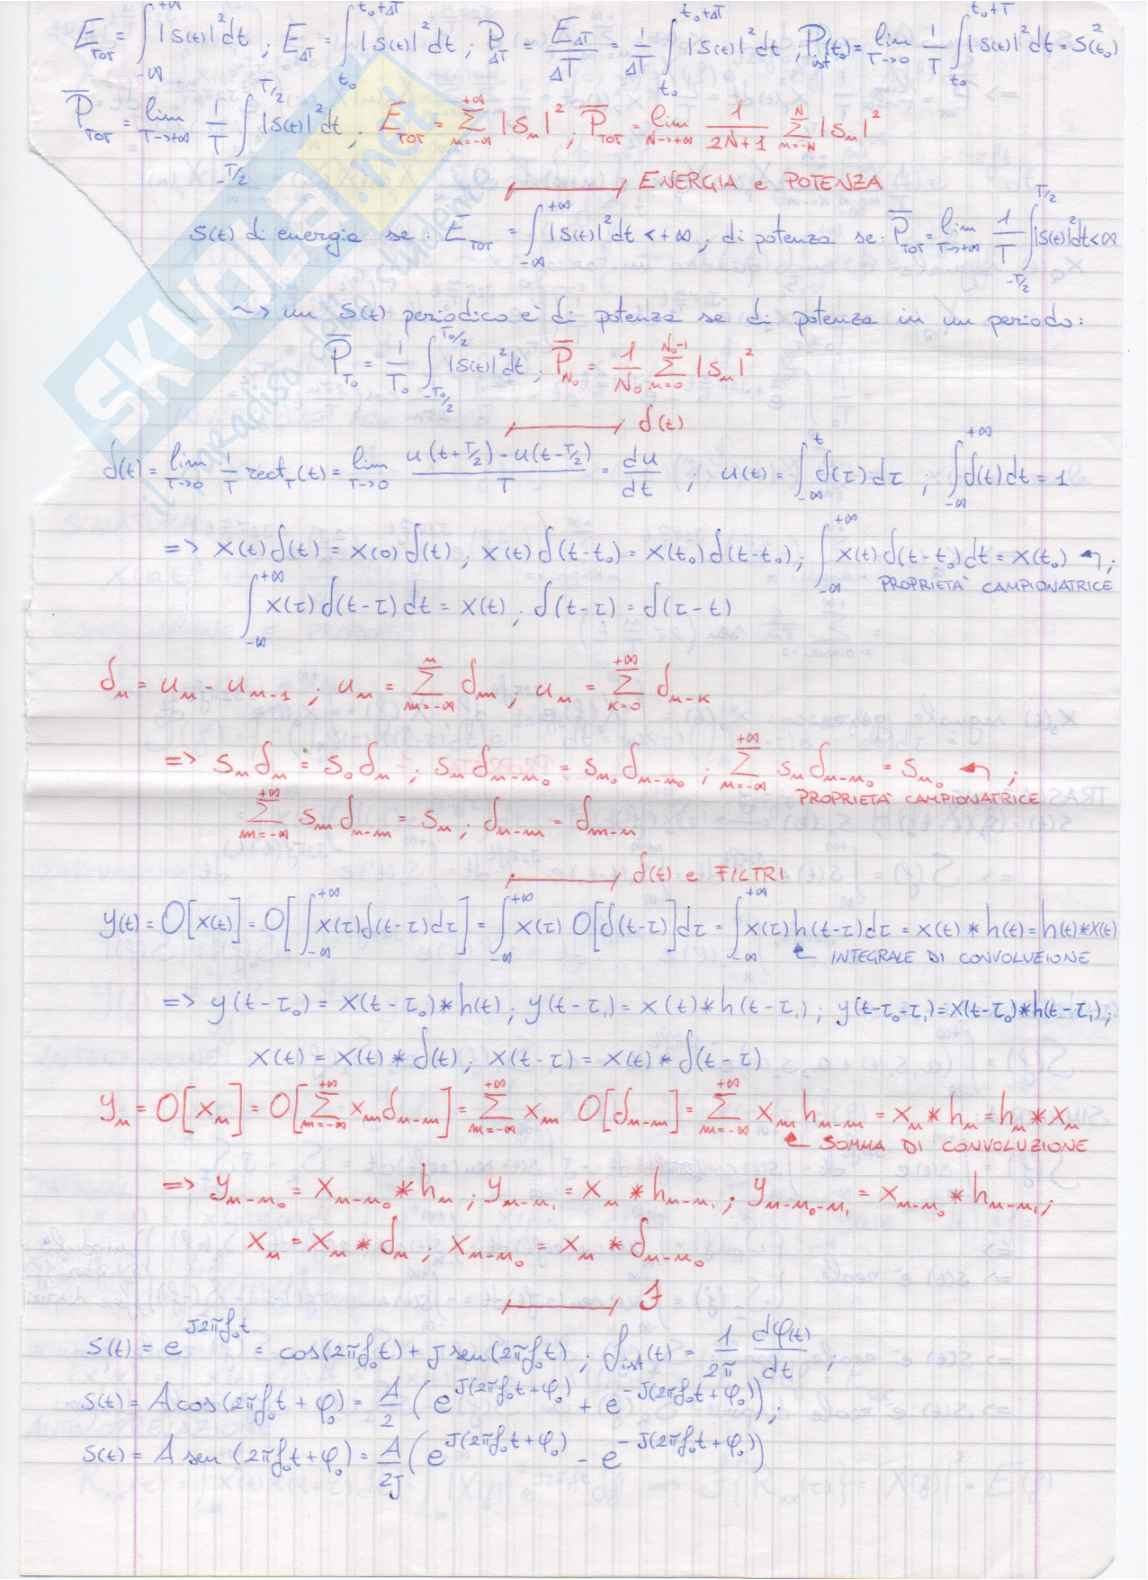 E_TOT = ∫_{-∞}^{+∞} |s(t)|² dt ; E_ΔT = ∫_{t₀}^{t₀+ΔT} |s(t)|² dt ; P̄_ΔT = E_ΔT/ΔT = 1/ΔT ∫_{t₀}^{t₀+ΔT} |s(t)|² dt ; P_ist(t₀) = lim_{T→0} 1/T ∫_{t₀}^{t₀+T} |s(t)|² dt = s²(t₀)
P̄_TOT = lim_{T→+∞} 1/T ∫_{-T/2}^{T/2} |s(t)|² dt ; E_TOT = Σ_{n=-∞}^{+∞} |s_n|² ; P̄_TOT = lim_{N→+∞} 1/(2N+1) Σ_{n=-N}^{N} |s_n|²
ENERGIA e POTENZA
s(t) di energia se: E_TOT = ∫_{-∞}^{+∞} |s(t)|² dt < +∞ ; di potenza se: P̄_TOT = lim_{T→+∞} 1/T ∫_{-T/2}^{T/2} |s(t)|² dt < ∞
~> un s(t) periodico è di potenza se di potenza in un periodo:
P̄_T₀ = 1/T₀ ∫_{-T₀/2}^{T₀/2} |s(t)|² dt ; P̄_N₀ = 1/N₀ Σ_{n=0}^{N₀-1} |s_n|²
δ(t)
δ(t) = lim_{T→0} 1/T rect_T(t) = lim_{T→0} (u(t+T/2) - u(t-T/2))/T = du/dt ; u(t) = ∫_{-∞}^{t} δ(τ) dτ ; ∫_{-∞}^{+∞} δ(t) dt = 1
=> x(t) δ(t) = x(0) δ(t) ; x(t) δ(t-t₀) = x(t₀) δ(t-t₀) ; ∫_{-∞}^{+∞} x(t) δ(t-t₀) dt = x(t₀) ↰ ;
PROPRIETA' CAMPIONATRICE
∫_{-∞}^{+∞} x(τ) δ(t-τ) dτ = x(t) ; δ(t-τ) = δ(τ-t)
δ_n = u_n - u_{n-1} ; u_n = Σ_{m=-∞}^{n} δ_m ; u_n = Σ_{k=0}^{+∞} δ_{n-k}
=> s_n δ_n = s_0 δ_n ; s_n δ_{n-n₀} = s_{n₀} δ_{n-n₀} ; Σ_{n=-∞}^{+∞} s_n δ_{n-n₀} = s_{n₀} ↰ ;
PROPRIETA' CAMPIONATRICE
Σ_{m=-∞}^{+∞} s_m δ_{n-m} = s_n ; δ_{n-m} = δ_{m-n}
δ(t) e FILTRI
y(t) = O[x(t)] = O[∫_{-∞}^{+∞} x(τ) δ(t-τ) dτ] = ∫_{-∞}^{+∞} x(τ) O[δ(t-τ)] dτ = ∫_{-∞}^{+∞} x(τ) h(t-τ) dτ = x(t) * h(t) = h(t) * x(t)
INTEGRALE DI CONVOLUZIONE
=> y(t-τ₀) = x(t-τ₀) * h(t) ; y(t-τ₁) = x(t) * h(t-τ₁) ; y(t-τ₀-τ₁) = x(t-τ₀) * h(t-τ₁) ;
x(t) = x(t) * δ(t) ; x(t-τ) = x(t) * δ(t-τ)
y_n = O[x_n] = O[Σ_{m=-∞}^{+∞} x_m δ_{n-m}] = Σ_{m=-∞}^{+∞} x_m O[δ_{n-m}] = Σ_{m=-∞}^{+∞} x_m h_{n-m} = x_n * h_n = h_n * x_n
SOMMA DI CONVOLUZIONE
=> y_{n-n₀} = x_{n-n₀} * h_n ; y_{n-n₁} = x_n * h_{n-n₁} ; y_{n-n₀-n₁} = x_{n-n₀} * h_{n-n₁} ;
x_n = x_n * δ_n ; x_{n-n₀} = x_n * δ_{n-n₀}
s(t) = e^{J2πf₀t} = cos(2πf₀t) + J sen(2πf₀t) ; f_ist(t) = 1/2π dφ(t)/dt ;
s(t) = A cos(2πf₀t + φ₀) = A/2 (e^{J(2πf₀t+φ₀)} + e^{-J(2πf₀t+φ₀)}) ;
s(t) = A sen(2πf₀t + φ₀) = A/2J (e^{J(2πf₀t+φ₀)} - e^{-J(2πf₀t+φ₀)})
SKUOLA.net